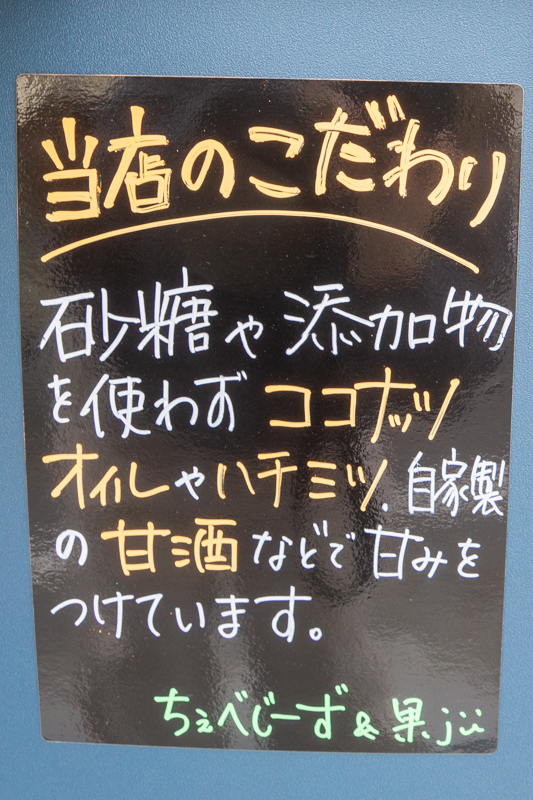 当店のこだわり
砂糖や添加物
を使わず ココナッツ
オイルやハチミツ、自家製
の 甘酒などで甘みを
つけています。
ちぇべじーず&果.jui